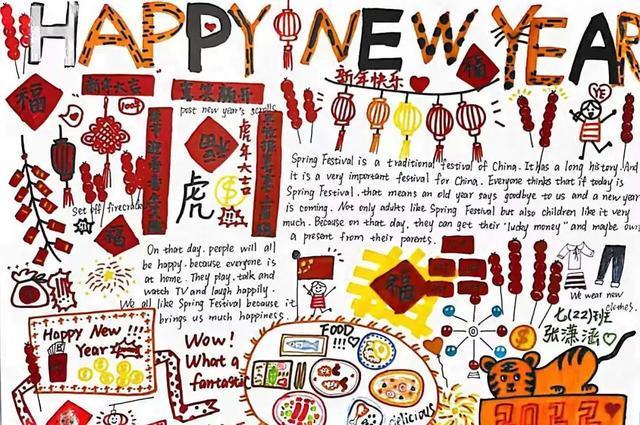 HAPPY NEW YEAR
新年快乐
福
YE
福
新年大吉
100分
post new year's scrolls
福
虎年大吉
虎
Set off firecrackers
福
Spring Festival is a traditional festival of China. It has a long history. And
it is a very important festival for China. Everyone thinks that if today is
Spring Festival. that means an old year says goodbye to us and a new year
is coming. Not only adults like Spring Festival but also children like it very
much. Because on that day, they can get their "lucky money" and maybe own
a present from their parents.
On that day. people will all
be happy. because everyone is
at home. They play. talk and
watch TV and laugh happily.
We all like Spring Festival because it
brings us much happiness.
福
We wear new
clothes.
七(22)班
张潇涵
Happy New !!!
Year
Wow!
What a
fantastic
FOOD
!!!
delicious
2022